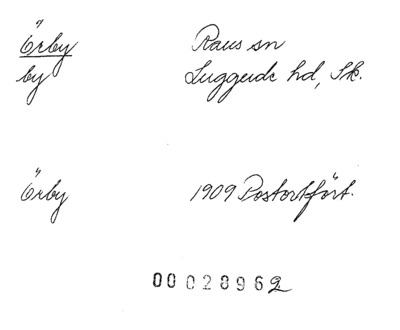 Örby Raus sn
by Luggude hd, Sk.
Örby 1909 Postortfört.
00028962